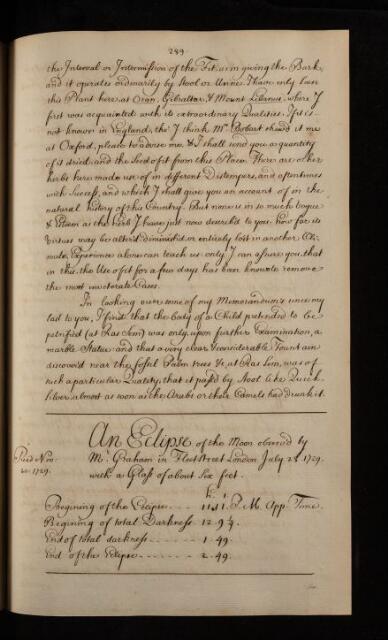 289
the Interval or Intermission of the Fit as in giving the Bark
and it operates ordinarily by Stool or Urine. I have only seen
this Plant here at Oran, Gibraltar, & Mount Libanus, where I
first was acquainted with its extraordinary Qualities. If it is
not known in England, tho' I think Mr. Bobart shew'd it me
at Oxford, please to advise me & I shall send you a quantity
of it dried and the Seed of it from this Place. There are other
herbs here made use of in different Distempers, and oftentimes
with Success, and which I shall give you an account of in the
natural history of this Country. But none is in so much vogue
& Esteem as the herb I have just now describ'd to you. how far its
Virtues may be alter'd diminish'd or entirely lost in another Cli-
mate, Experience alone can teach us only I can assure you, that
in this, the Use of it for a few days has been known to remove
the most inveterate Cases.
In looking over some of my Memorandums since my
last to you, I find that the body of a Child pretended to be
petrified (at Ras Sem) was only upon further Examination, a
marble Statue and that a very clear & considerable Fountain
discover'd near the fossil Palm trees &c at Ras Sem, was of
such a particular Quality, that it pass'd by Stool like Quick-
silver almost as soon as the Arabs or their Camels had drunk it.
An Eclipse of the Moon observ'd by
Mr. Graham in Fleet Street London July 28 1729.
with a Glass of about Six feet.
Read Nov.
20. 1729.
h. '
Begining of the Eclipse - - 11.11. P. M. App. Time.
Begining of total Darkness 12. 9¼.
End of total darkness - - - 1. 49.
End of the Eclipse - - - - 2. 49.